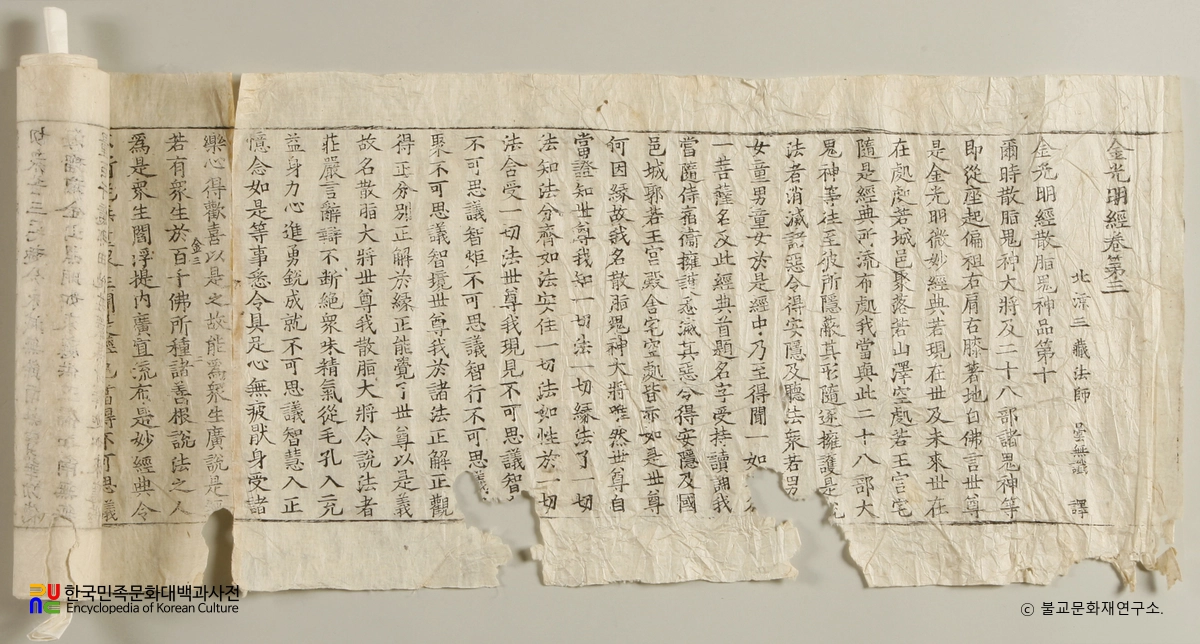 金光明經卷第三
北涼三藏法師 曇無讖 譯
金光明經散脂鬼神品第十
爾時散脂鬼神大將及二十八部諸鬼神等
即從座起偏袒右肩右膝著地白佛言世尊
是金光明微妙經典若現在世及未來世在
在處處若城邑聚落若山澤空處若王宮宅
隨是經典所流布處我當與此二十八部大
鬼神等往至彼所隱蔽其形隨逐擁護是
法者消滅諸惡令得安隱及聽法衆若男
女童男童女於是經中乃至得聞一如
一菩薩名及此經典首題名字受持讀誦我
當隨侍宿衛擁護悉滅其惡令得安隱及國
邑城郭若王宮殿舍宅空處皆亦如是世尊
何因緣故我名散脂鬼神大將唯然世尊自
當證知世尊我知一切法一切緣法了一切
法知法分齊如法安住一切法如性於一切
法含受一切法世尊我現見不可思議智
不可思議智炬不可思議智行不可思議
聚不可思議智境世尊我於諸法正解正觀
得正分別正解於緣正能覺了世尊以是義
故名散脂大將世尊我散脂大將令說法者
莊嚴言辭辯不斷絕衆味精氣從毛孔入充
益身力心進勇銳成就不可思議智慧入正
憶念如是等事悉令具足心無疲猒身受諸
樂心得歡喜以是之故能爲衆生廣說是
金三
若有衆生於百千佛所種諸善根說法之人
爲是衆生閻浮提內廣宣流布是妙經典令
得不可思議
한국민족문화대백과사전
Encyclopedia of Korean Culture
ⓒ 불교문화재연구소.